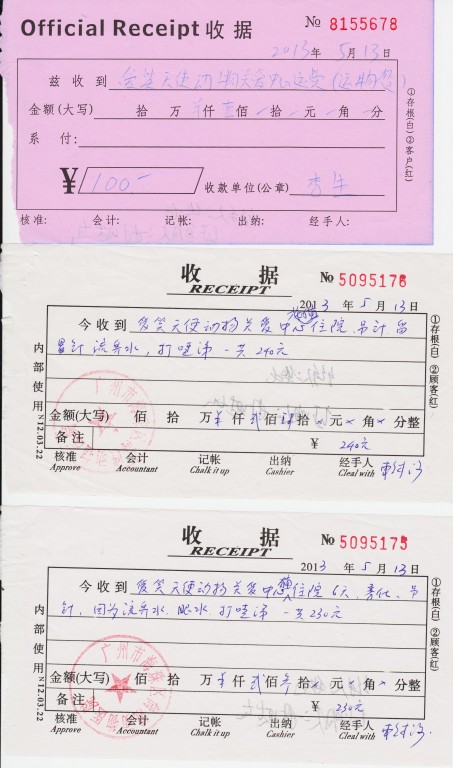 Official Receipt 收据
No 8155678
2013年 5月 13日
兹收到 爱笑天使动物关爱中心运费(运狗费)
金额(大写) 拾 万 仟 壹佰 拾 元 角 分
系付:
¥ 100.-
收款单位(公章) 李生
核准: 会计: 记帐: 出纳: 经手人:
①存根(白) ②客户(红)
收据
RECEIPT
No 5095176
2013年 5月 13日
今收到 爱笑天使动物关爱中心 住院,吊针 留
置针 流鼻水,打喷涕 一共 240元
金额(大写) 佰 拾 万 仟 贰佰 肆拾 元 角 分整
备注
¥ 240元
核准 会计 记帐 出纳 经手人
Approve Accountant Chalk it up Cashier Cleal with
内部使用 N12.03.22
①存根(白) ②顾客(红)
收据
RECEIPT
No 5095175
2013年 5月 13日
今收到 爱笑天使动物关爱中心 住院 6天,
针,因为流鼻水 打喷涕 一共 230元
金额(大写) 佰 拾 万 仟 贰佰 叁拾 元 角 分整
备注
¥ 230元
核准 会计 记帐 出纳 经手人
Approve Accountant Chalk it up Cashier Cleal with
内部使用 N12.03.22
①存根(白) ②顾客(红)